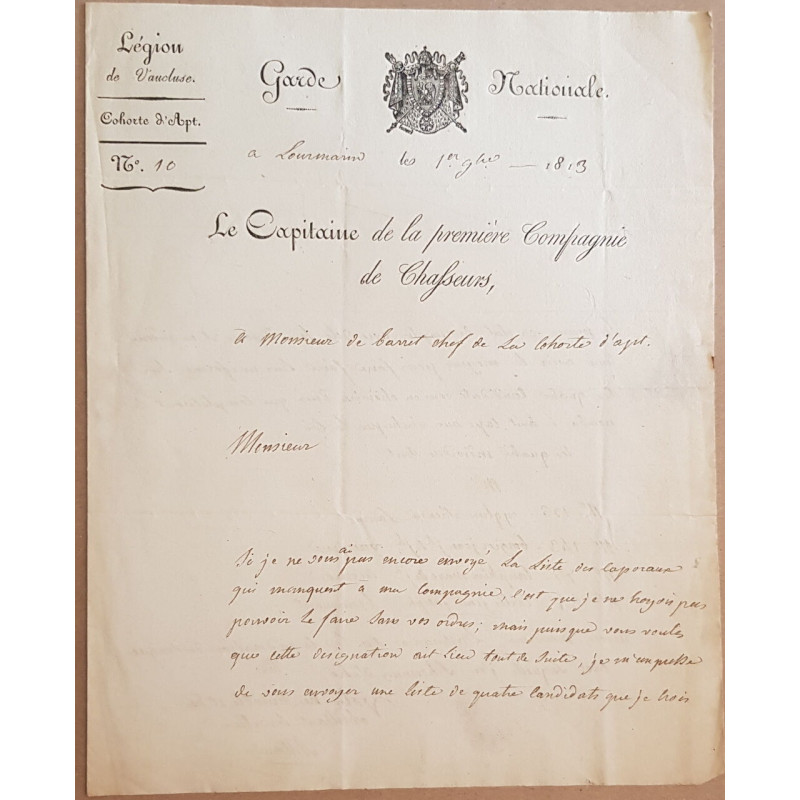 Légion
de Vaucluse.
Cohorte d'Apt.
N.° 10
Garde Nationale.
a Lourmarin les 1er 9bre — 1813
Le Capitaine de la première Compagnie
de Chasseurs,
a Monsieur de Barret chef de La Cohorte d'apt.
Monsieur
Si je ne vous ai pas encore envoyé La Liste des Caporaux
qui manquent à ma Compagnie, C'est que je ne Croyois pas
pouvoir le faire Sans vos ordres; mais puisque vous voulez
que cette désignation ait Lieu tout de Suite, je m'empresse
de vous envoyer une liste de quatre Candidats que je Crois